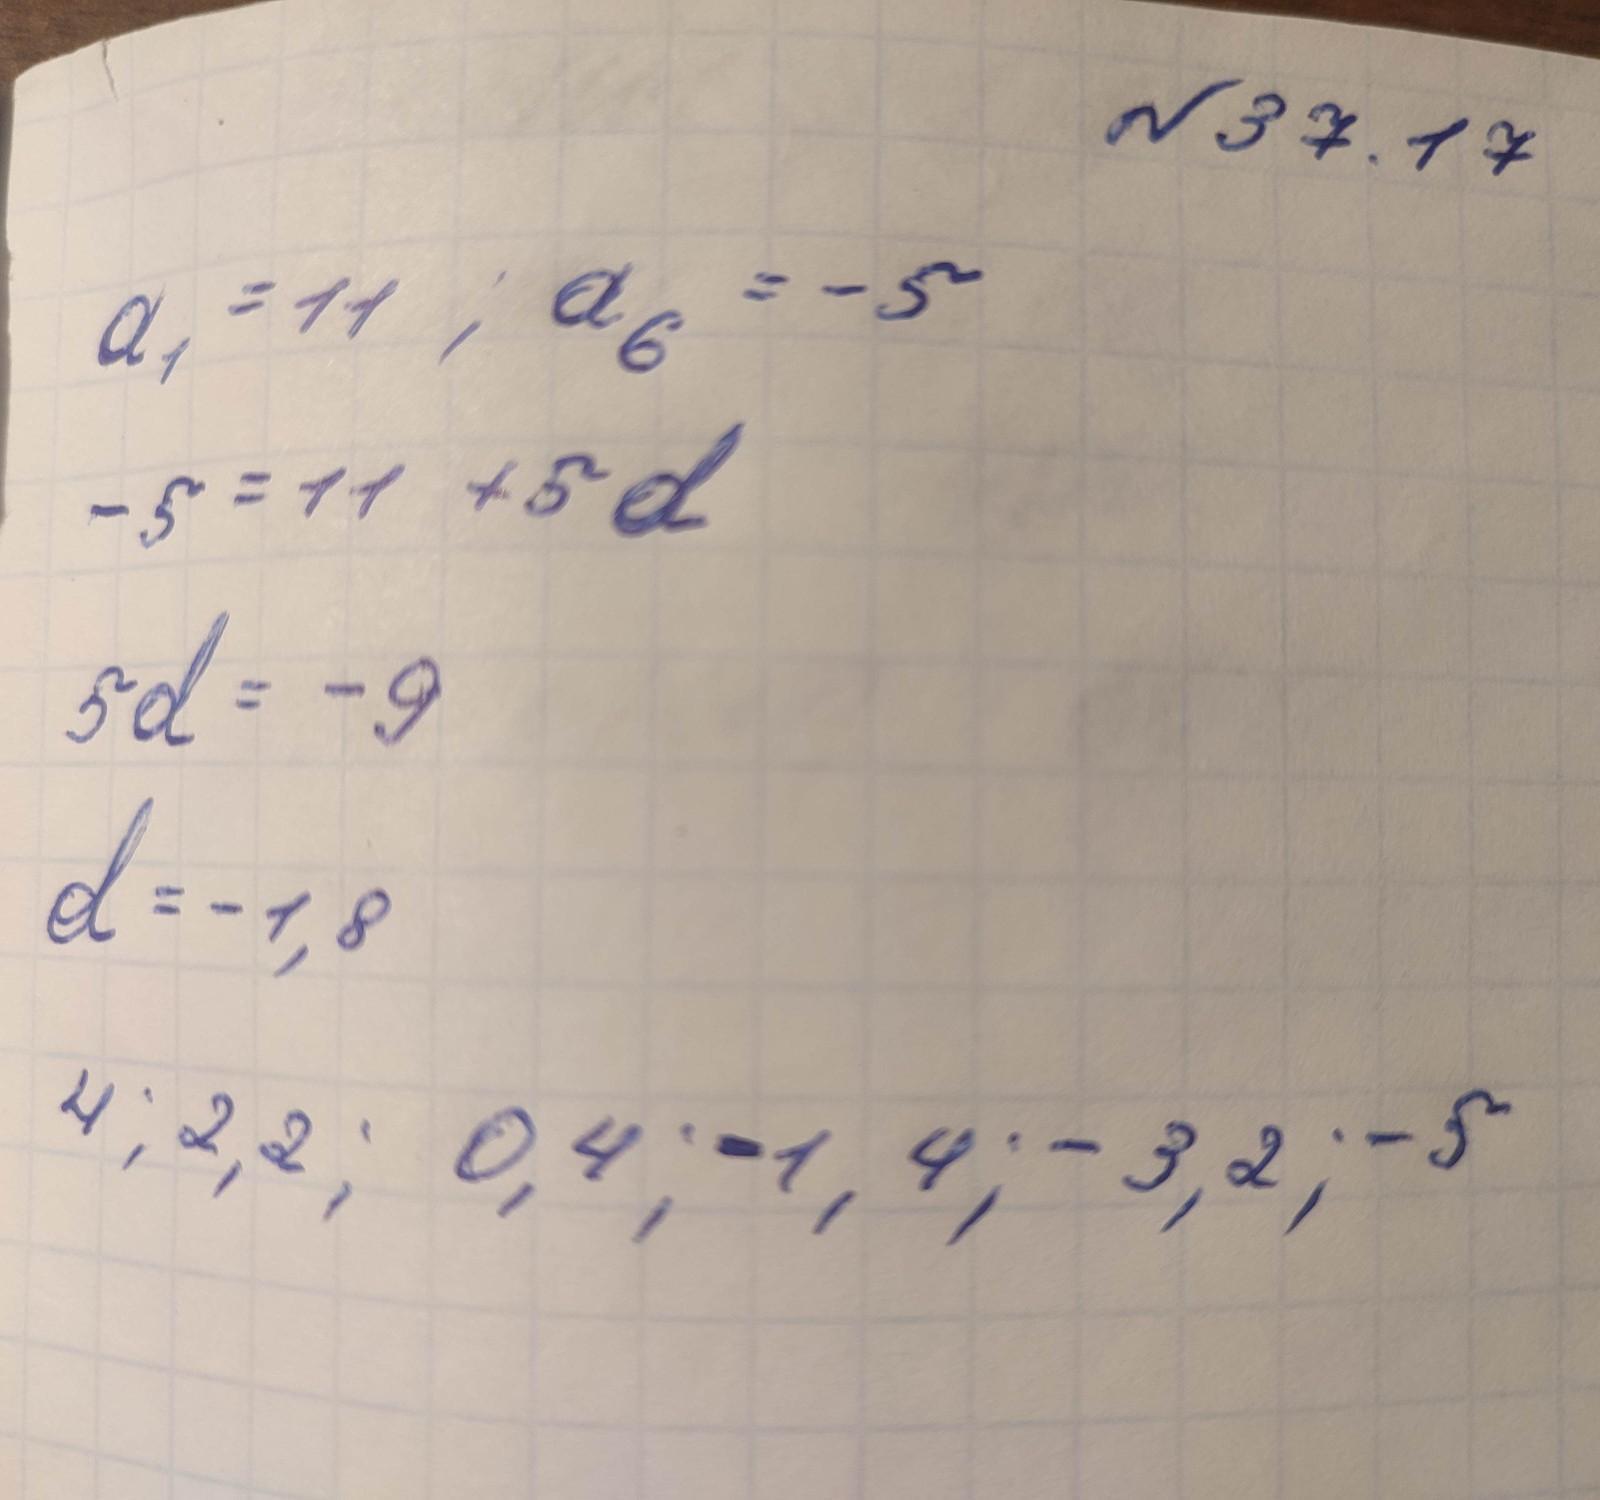 №37.17
a₁ = 11 ; a₆ = -5
-5 = 11 + 5d
5d = -9
d = -1,8
4; 2,2; 0,4; -1,4; -3,2; -5